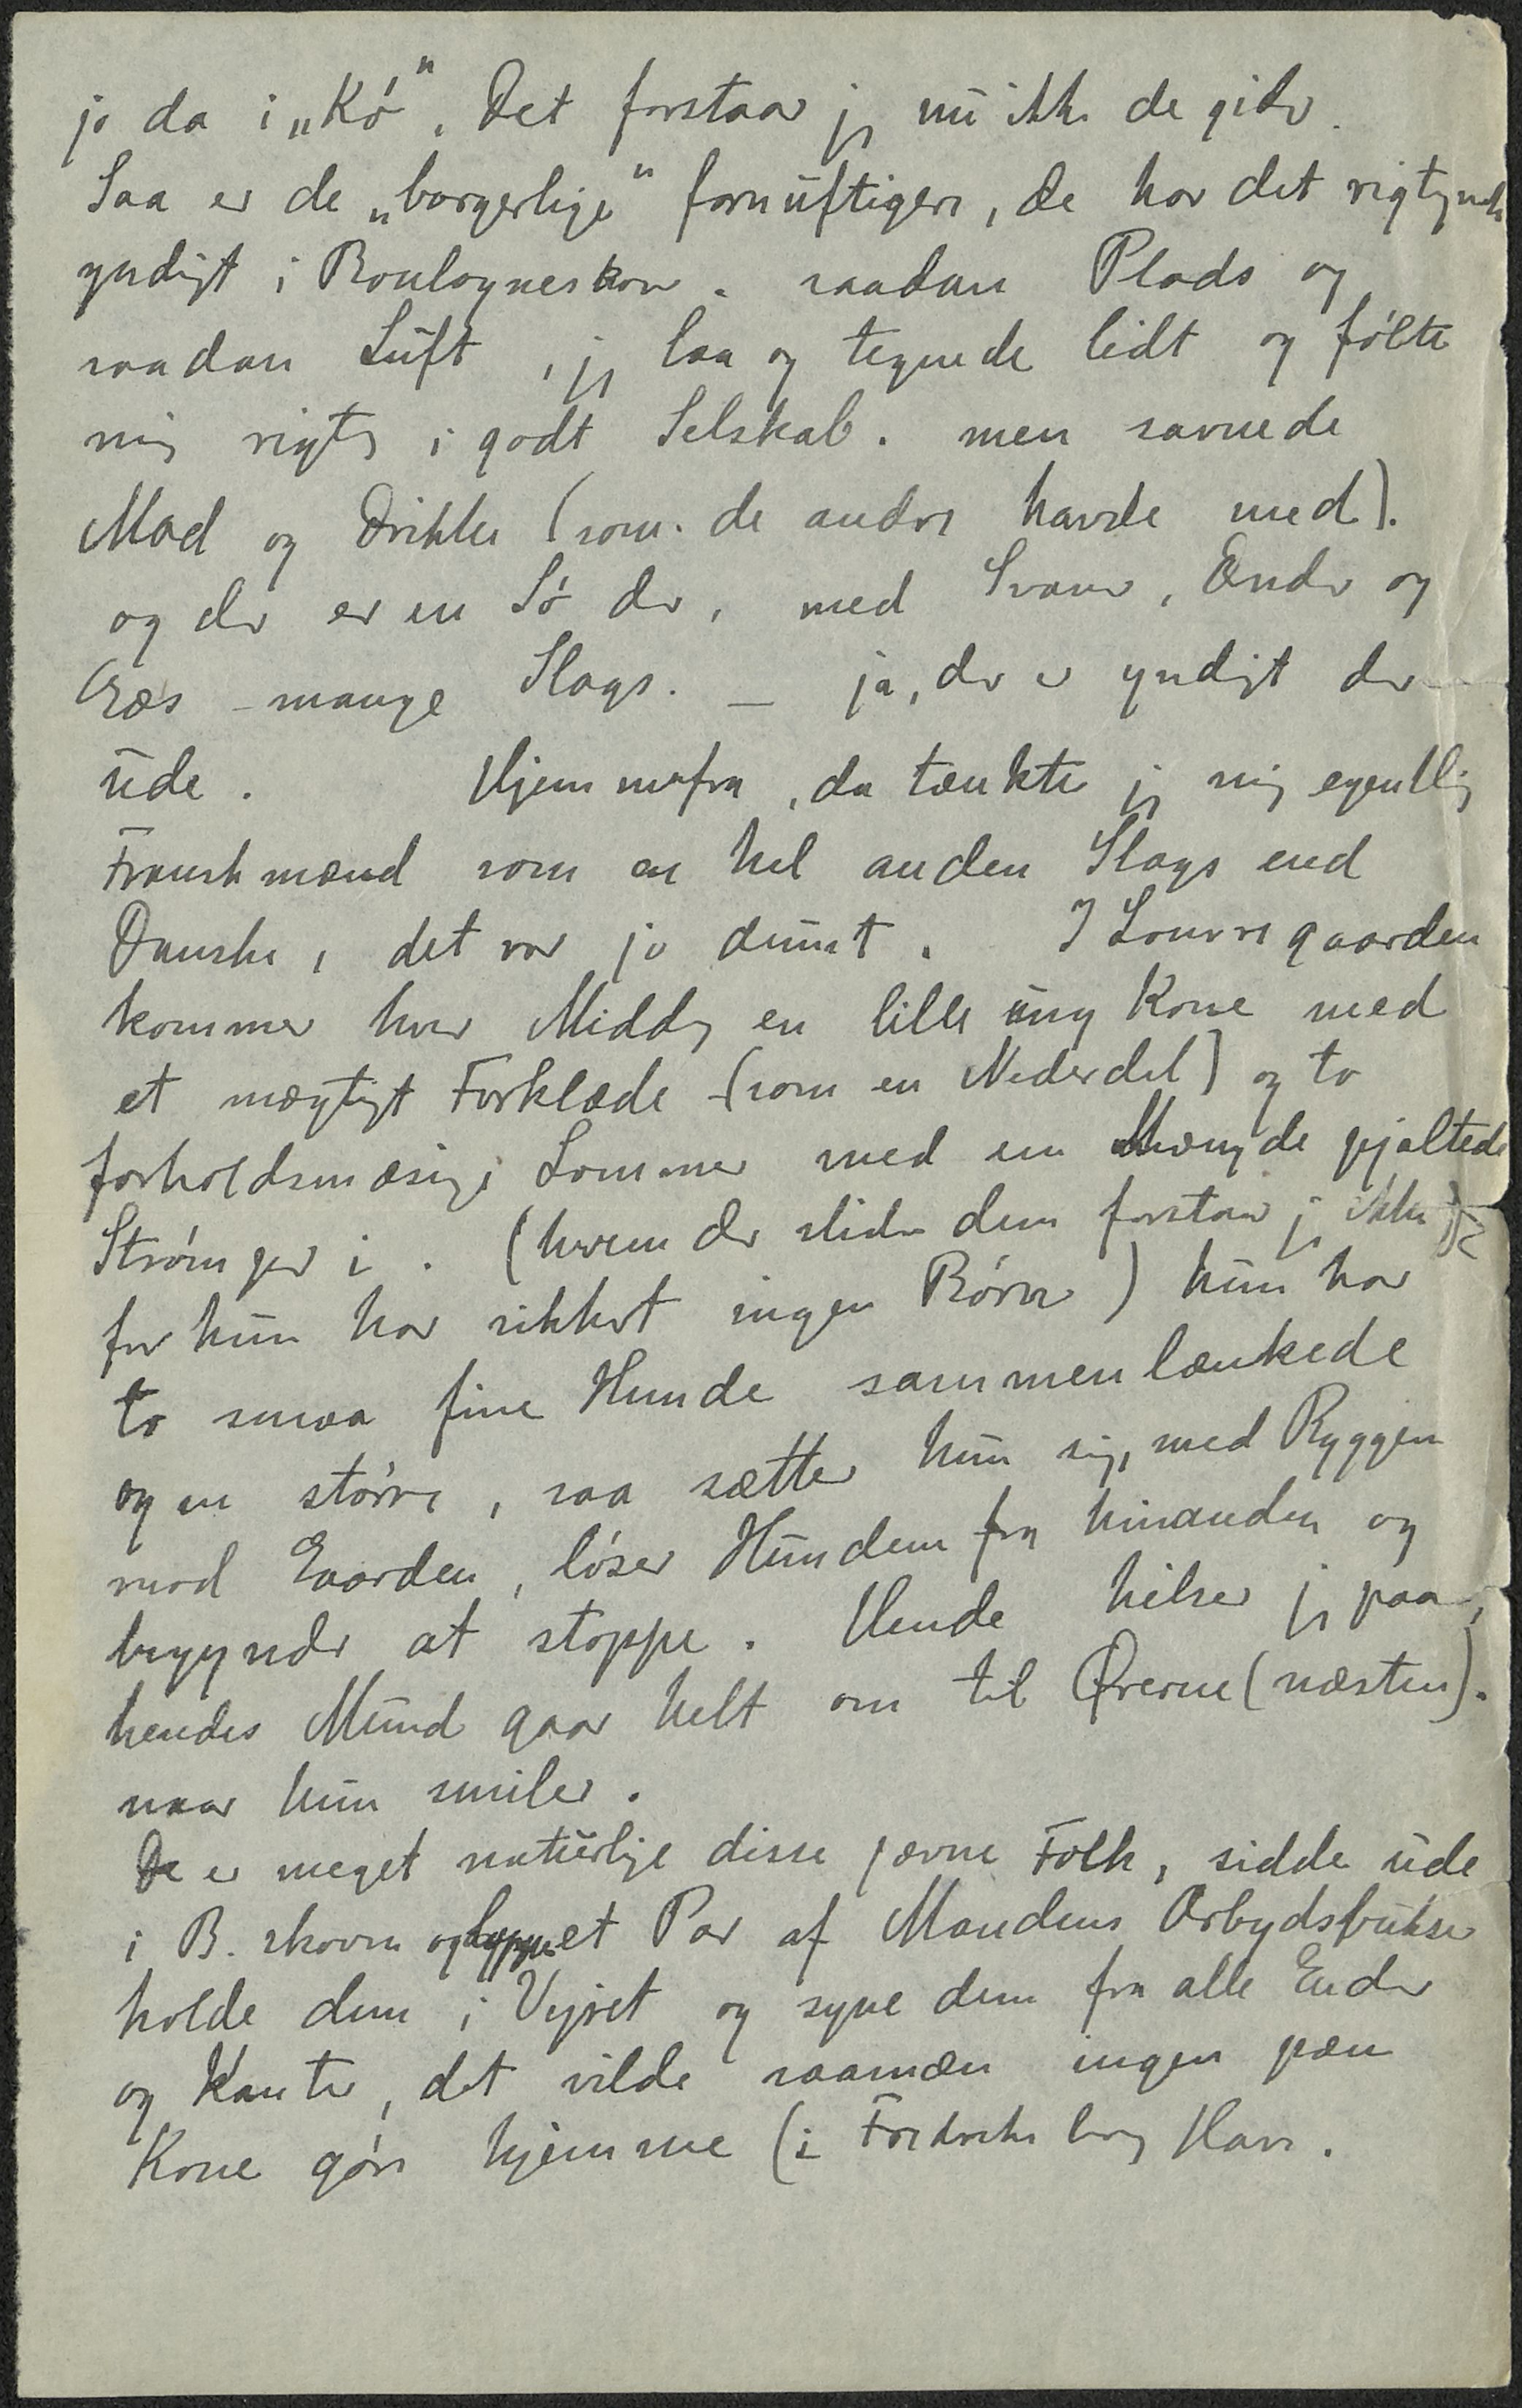 jo da i „Kö". Det forstaar jeg nu ikke de gider.
Saa er de „borgerlige" fornuftigere, de har det rigtignok
yndigt i Boulogneskov. saadan Plads og
saadan Luft, jeg laa og tegnede lidt og følte
mig rigtig i godt Selskab. men savnede
Mad og Drikke (som de andre havde med).
og der er en Sø der, med Svaner, Ænder og
Gæs – mange Slags. – ja, der er yndigt der
ude. Hjemmefra, da tænkte jeg mig egentlig
Franskmænd som en hel anden Slags end
Danske, det var jo dumt. I Louvregaarden
kommer hver Middag en lille ung Kone med
et mægtigt Forklæde (som en Nederdel) og to
forholdsmæsige Lommer med en Mængde pjaltede
Strømper i. (hvem der slider dem forstaar jeg ikke
for hun har sikkert ingen Børn) hun har
to smaa fine Hunde sammenlænkede
og en større, saa sætter hun sig, med Ryggen
mod Gaarden, løser Hundene fra hinanden og
begynder at stoppe. Hende hilser jeg paa,
hendes Mund gaar helt om til Ørerne (næsten).
naar hun smiler.
De er meget naturlige disse jævne Folk, sidde ude
i B. skoven og et Par af Mandens Arbejdsbukser
holde dem i Vejret og syne dem fra alle Ender
og Kanter, det vilde saamæn ingen pæn
Kone gøre hjemme (i Fredriksberg Have.